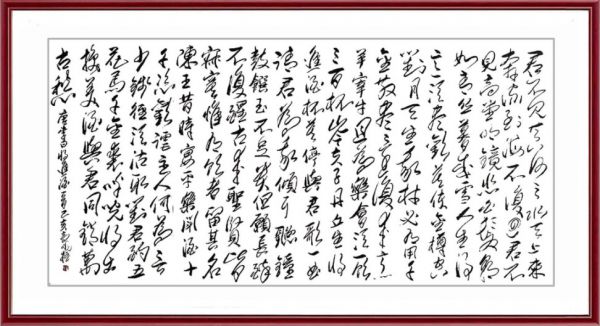 君不见黄河之水天上来
奔流到海不復回君不
見高堂明鏡悲白髮朝
如青丝暮成雪人生得
意须尽欢莫使金樽空
對月天生我材必有用千
金散尽还復来烹
羊宰牛且为樂会须一饮
三百杯岑夫子丹丘生将
進酒杯莫停與君歌一曲
请君为我倾耳听鐘
鼓饌玉不足貴但願長醉
不復醒古来聖賢皆
寂寞惟有饮者留其名
陳王昔時宴平樂斗酒十
千恣歡謔主人何為言
少錢徑須沽取對君酌五
花馬千金裘呼兒将出
換美酒與君同銷萬
古愁
唐李白将進酒